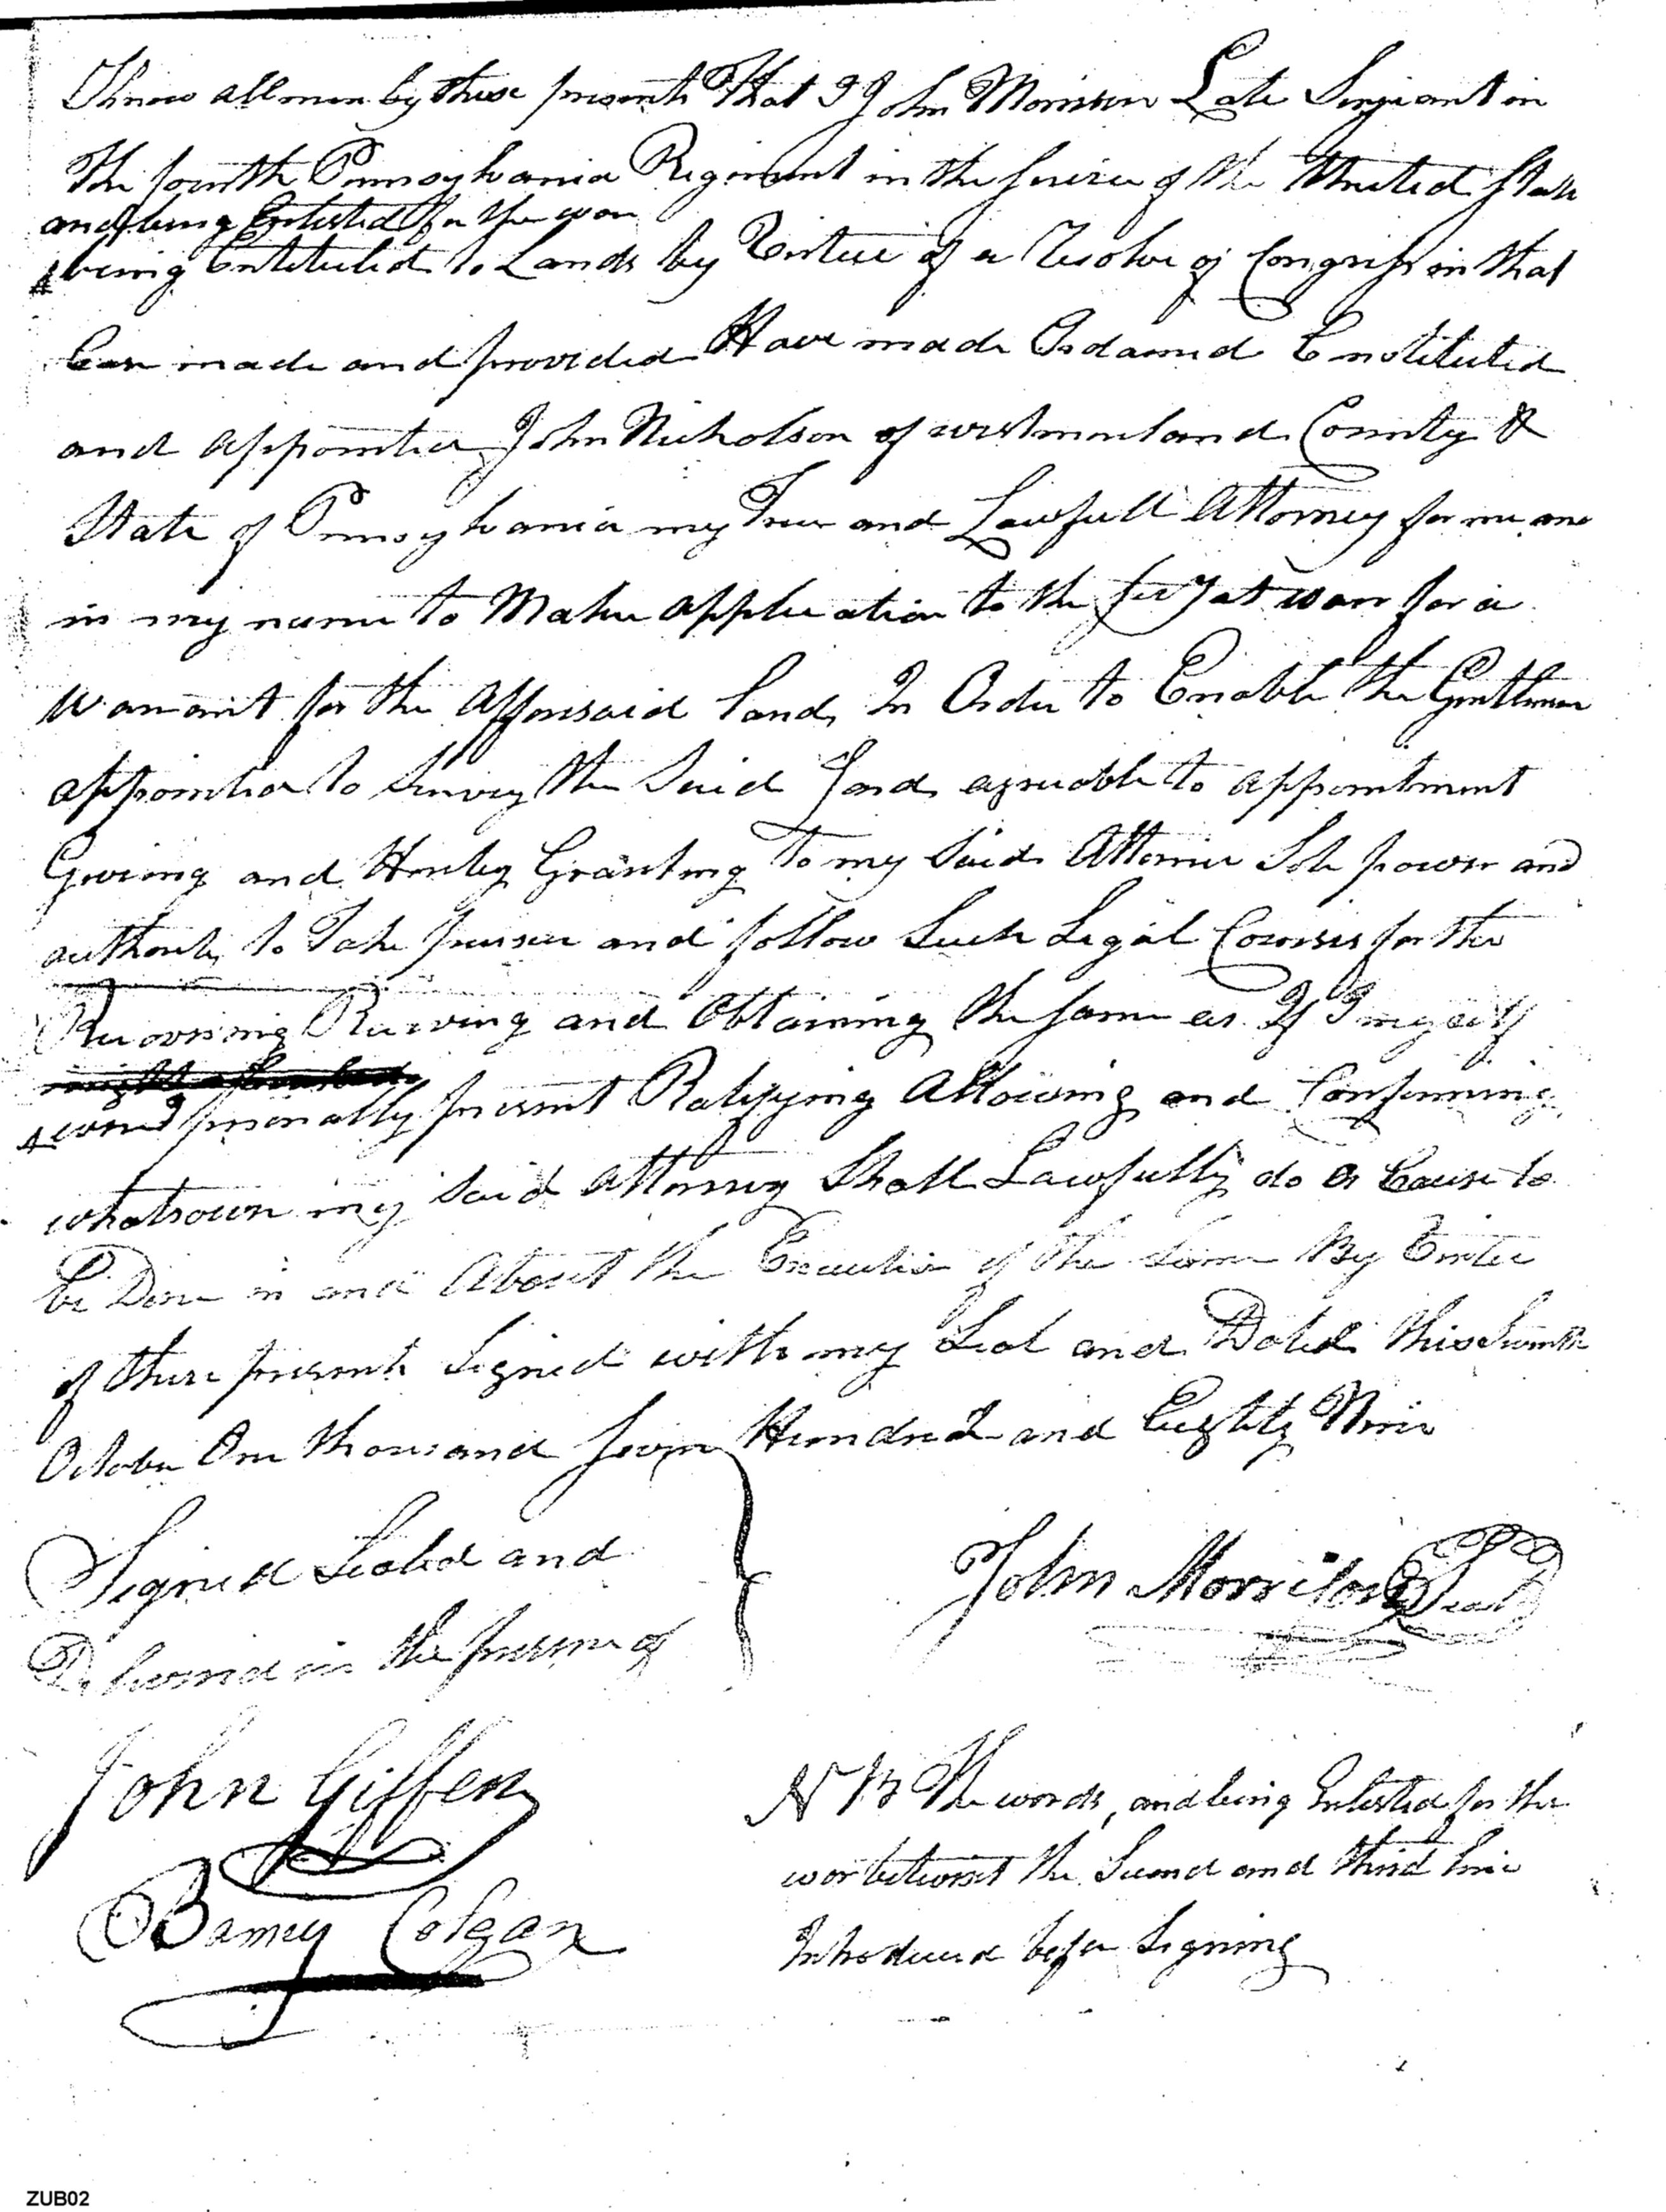 Know all men by these presents That I John Morrison Late Serjeant in
The fourth Pennsylvania Regiment in the Service of the United States
and being Enlisted for the war
being Entituled to Lands by Vertue of a Resolve of Congress in that
Case made and provided Have made Ordained Constituted
and appointed John Nicholson of westmorland County &
State of Pennsylvania my True and Lawfull Attorney for me and
in my name to Make application to the Secy at war for a
warrant for the afforesaid Land, In Order to Enable the Gentlemen
appointed to Survey the Said Land, agreable to appointment
Giveing and Hereby Granting To my Said Attorney Sole power and
authority to Take persue and follow Such Legal Courses for the
Recovering Receving and Obtaining the same as If I myself
were personally present Ratifying Allowing and Confirming
whatsoever my Said Attorney Shall Lawfully do or Cause to
be Done in and About the Execution of the Same By Vertue
of these presents Signed with my Seal and Dated this Seventh
October One thousand Seven Hundred and Eighty Nine
Signed Sealed and
Delivered in the presence of
John Morrison Seal
John Giffen
Barney Colgan
N B The words, and being Enlisted for the
war betwixt the Second and third line
Introduced before Signing
ZUB02